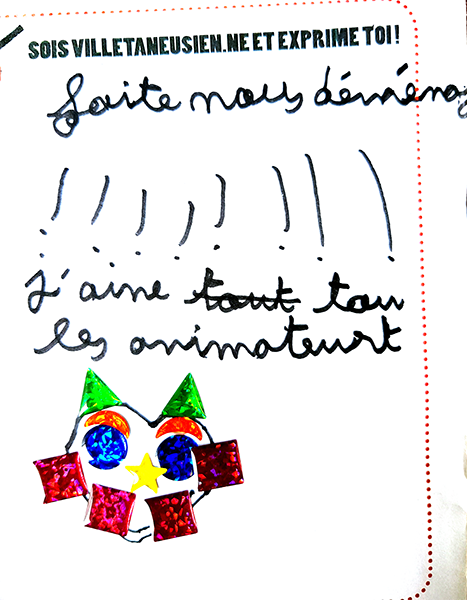 SOIS VILLETANEUSIEN.NE ET EXPRIME TOI !
faite nous déména
! ! ! ! ! ! ! !
j'aime tout tou
les animateurt